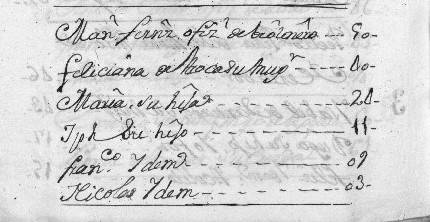 Man.l fern.z ofiz.l de 50-
feliciana de Roca su mug.r 40-
Maria su hija 20-
Jph su hijo 11-
fran.co Ydem 09
Nicolas Ydem 03-